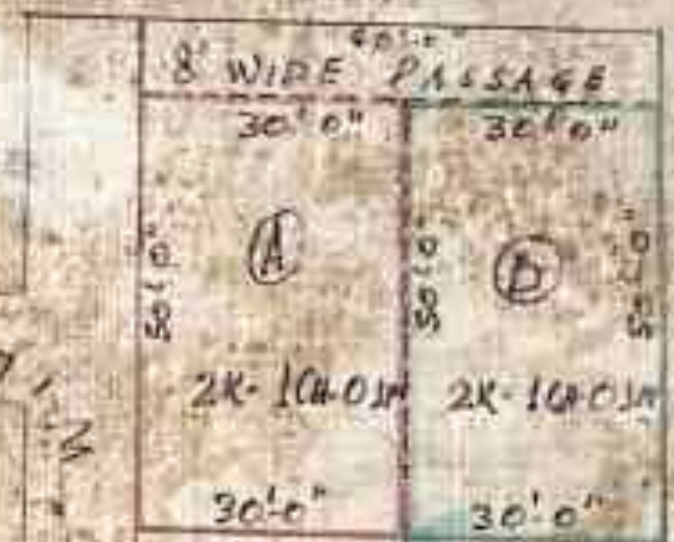 60'-0"
8' WIDE PASSAGE
30'-0" 30'-0"
A B
50'-0" 50'-0" 50'-0"
2K-1CH-0 2K-1CH-0
30'-0" 30'-0"